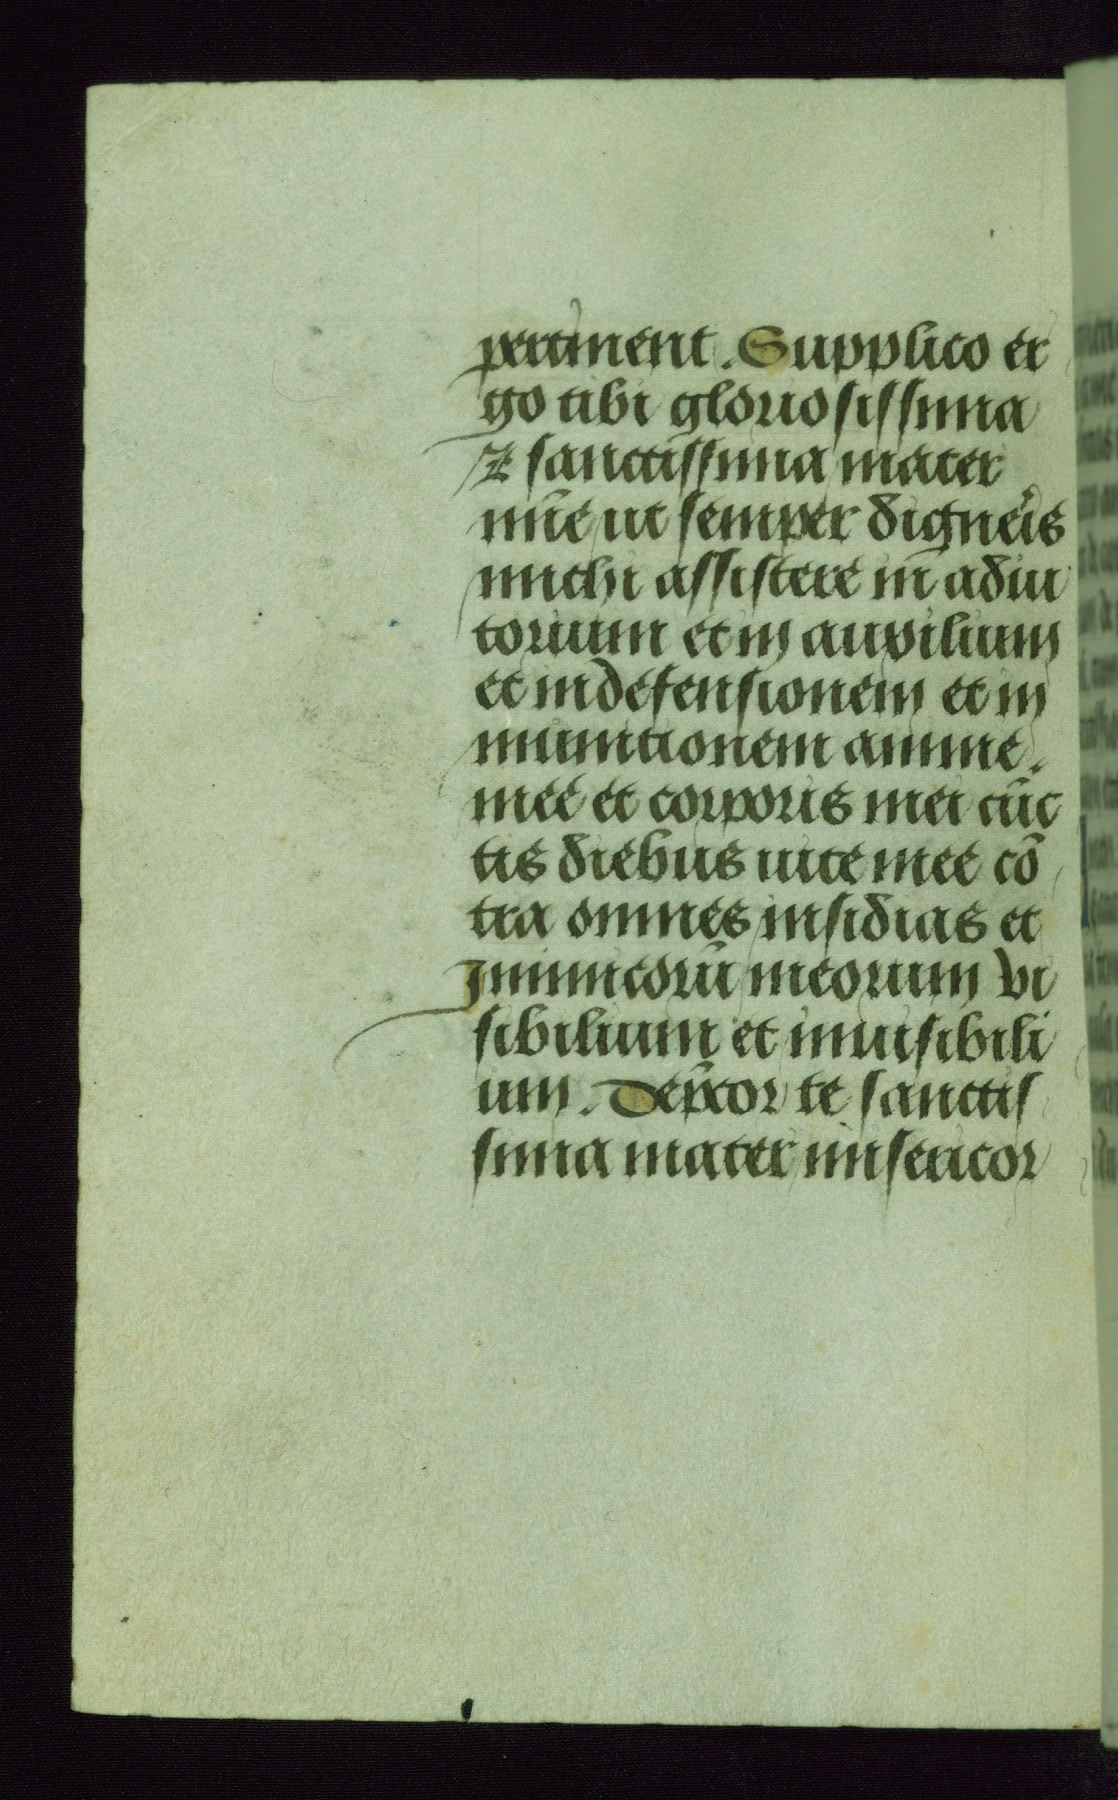 pertinent. Supplico er
go tibi gloriosissima
⁊ sanctissima mater
ut semper digneris
michi assistere in adiu
torium et in auxilium
et in defensionem et in
munitionem anime.
mee et corporis mei cūc
tis diebus uite mee cō
tra omnes insidias et
Inimicorū meorum vi
sibilium et inuisibili
um. Dep̄cor te sanctis
sima mater misericor